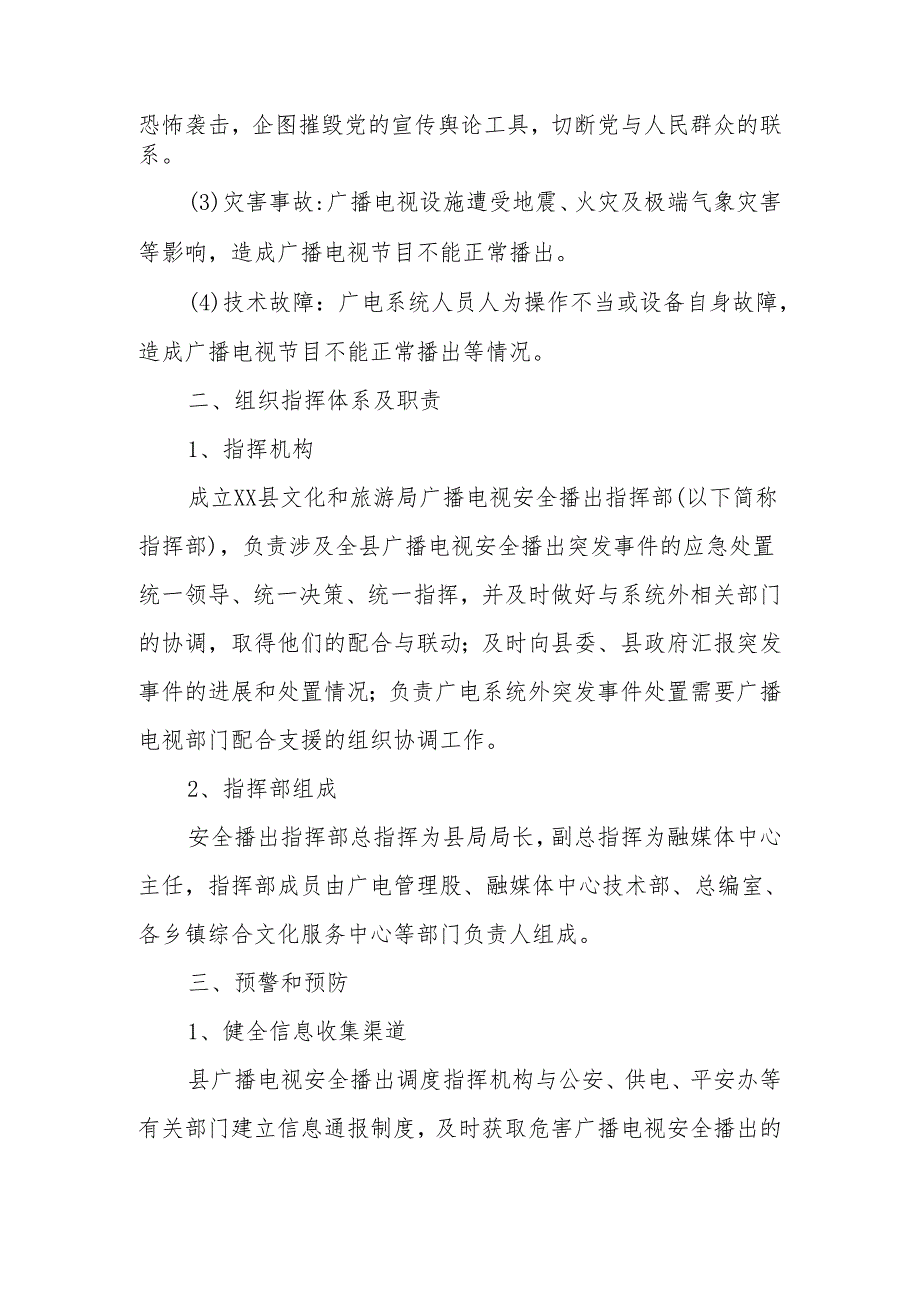 恐怖袭击，企图摧毁党的宣传舆论工具，切断党与人民群众的联
系。
(3)灾害事故:广播电视设施遭受地震、火灾及极端气象灾害
等影响，造成广播电视节目不能正常播出。
(4)技术故障：广电系统人员人为操作不当或设备自身故障，
造成广播电视节目不能正常播出等情况。
二、组织指挥体系及职责
1、指挥机构
成立XX县文化和旅游局广播电视安全播出指挥部(以下简称
指挥部)，负责涉及全县广播电视安全播出突发事件的应急处置
统一领导、统一决策、统一指挥，并及时做好与系统外相关部门
的协调，取得他们的配合与联动；及时向县委、县政府汇报突发
事件的进展和处置情况；负责广电系统外突发事件处置需要广播
电视部门配合支援的组织协调工作。
2、指挥部组成
安全播出指挥部总指挥为县局局长，副总指挥为融媒体中心
主任，指挥部成员由广电管理股、融媒体中心技术部、总编室、
各乡镇综合文化服务中心等部门负责人组成。
三、预警和预防
1、健全信息收集渠道
县广播电视安全播出调度指挥机构与公安、供电、平安办等
有关部门建立信息通报制度，及时获取危害广播电视安全播出的